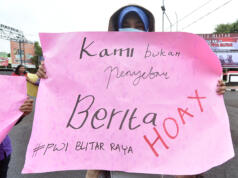 Kami bukan
Penyebar
Berita
HOAX
#PWI BLITAR RAYA